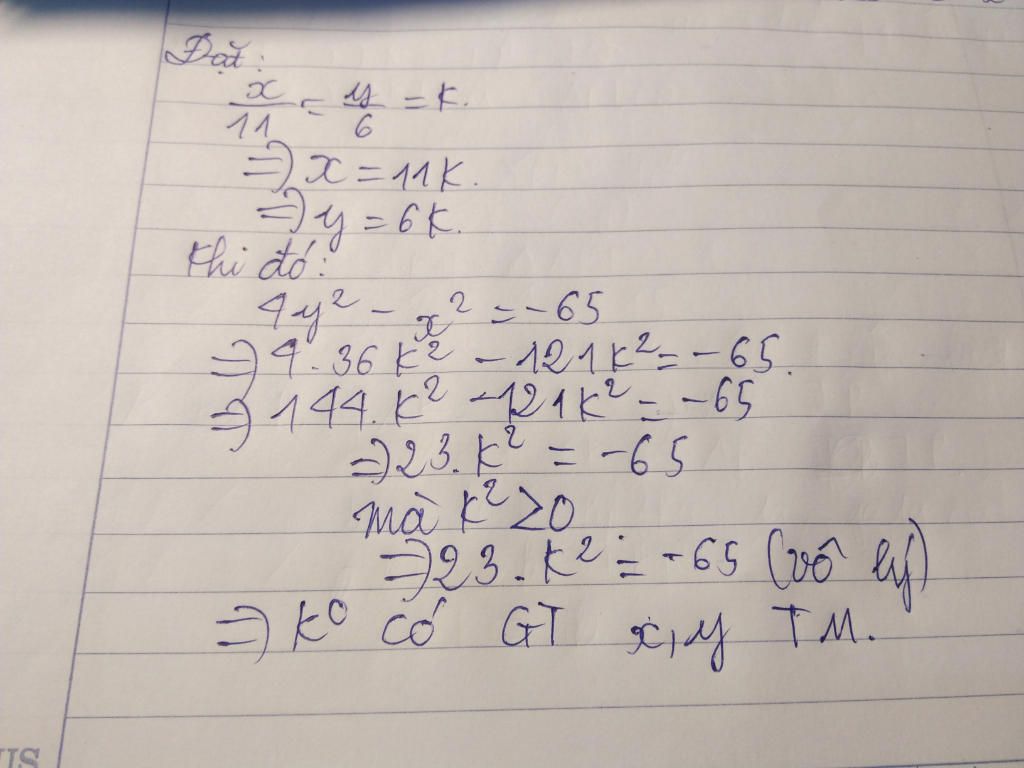 Đặt:
x/11 = y/6 = k.
=> x = 11k.
=> y = 6k.
Khi đó:
4y² - x² = -65
=> 4.36k² - 121k² = -65.
=> 144.k² - 121k² = -65
=> 23.k² = -65
mà k² ≥ 0
=> 23.k² = -65 (vô lý)
=> k⁰ có GT x,y TM.
US